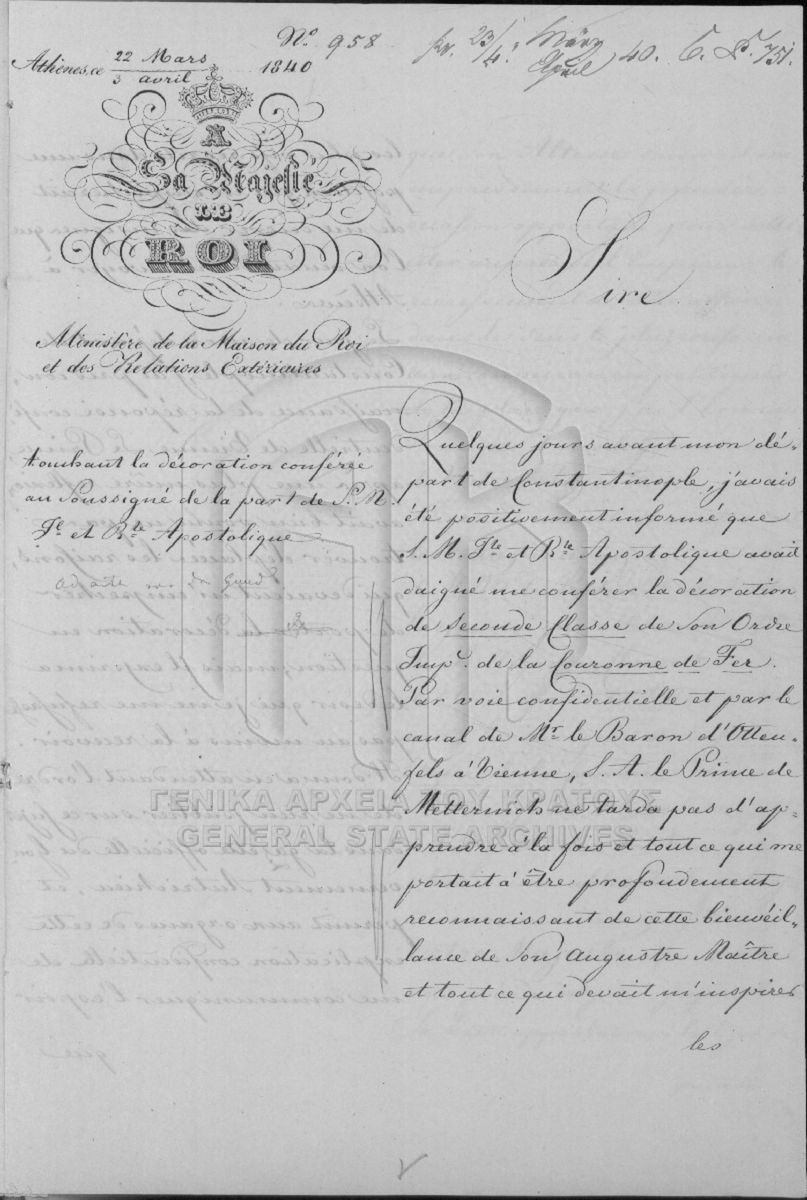 Nº 958
22 Mars
Athènes, ce 3 avril 1840
pr. 23/4. März April 40. 751.
A
Sa Majesté
LE
ROI
Ministère de la Maison du Roi
et des Relations Extérieures
touchant la décoration conférée
au Soussigné de la part de S. M.
Ie et Rle Apostolique
Sire
Quelques jours avant mon dé-
part de Constantinople, j'avais
été positivement informé que
S. M. Ile et Rle Apostolique avait
daigné me conférer la décoration
de Seconde Classe de Son Ordre
Impl. de la Couronne de Fer.
Par voie confidentielle et par le
canal de Mr le Baron d'Otten-
fels à Vienne, S. A. le Prince de
Metternich ne tarda pas d'ap-
prendre à la fois et tout ce qui me
portait à être profondement
reconnaissant de cette bienveil-
lance de Son Augustre Maître
et tout ce qui devait m'inspirer
les
ΓΕΝΙΚΑ ΑΡΧΕΙΑ ΤΟΥ ΚΡΑΤΟΥΣ
GENERAL STATE ARCHIVES